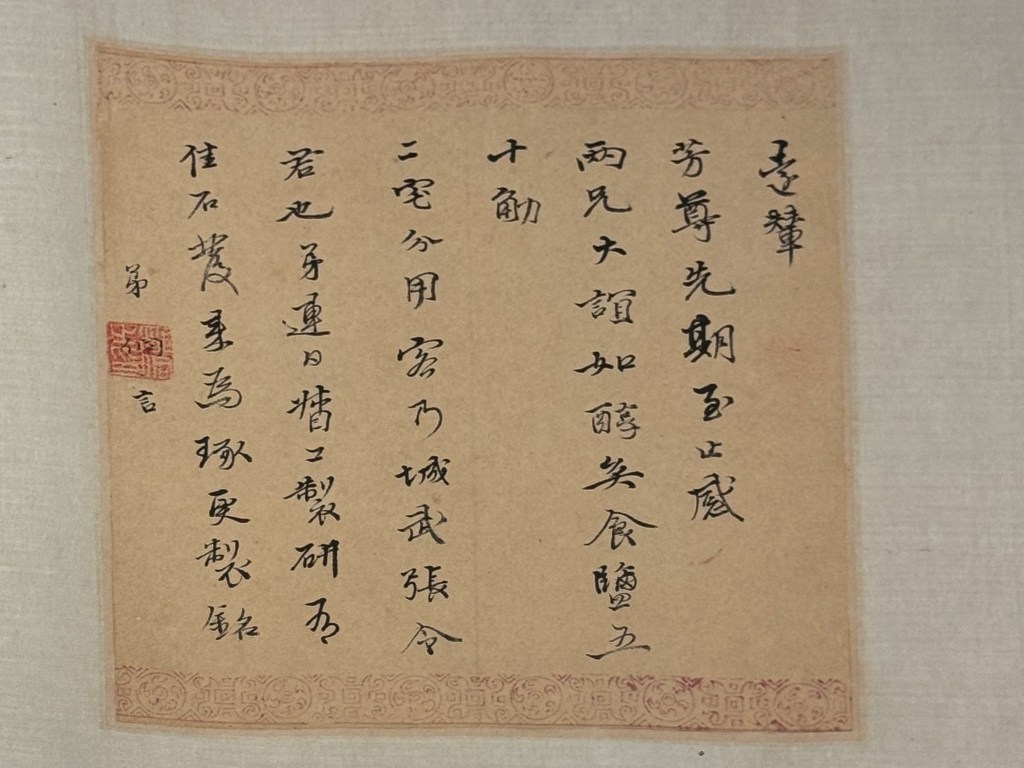 遠輦
芳尊先期至止感
兩兄大誼如醇矣食鹽五
十觔
二宅分用客乃城武張令
若也弟連日督工製研有
佳石發來為琢更製銘
弟
言